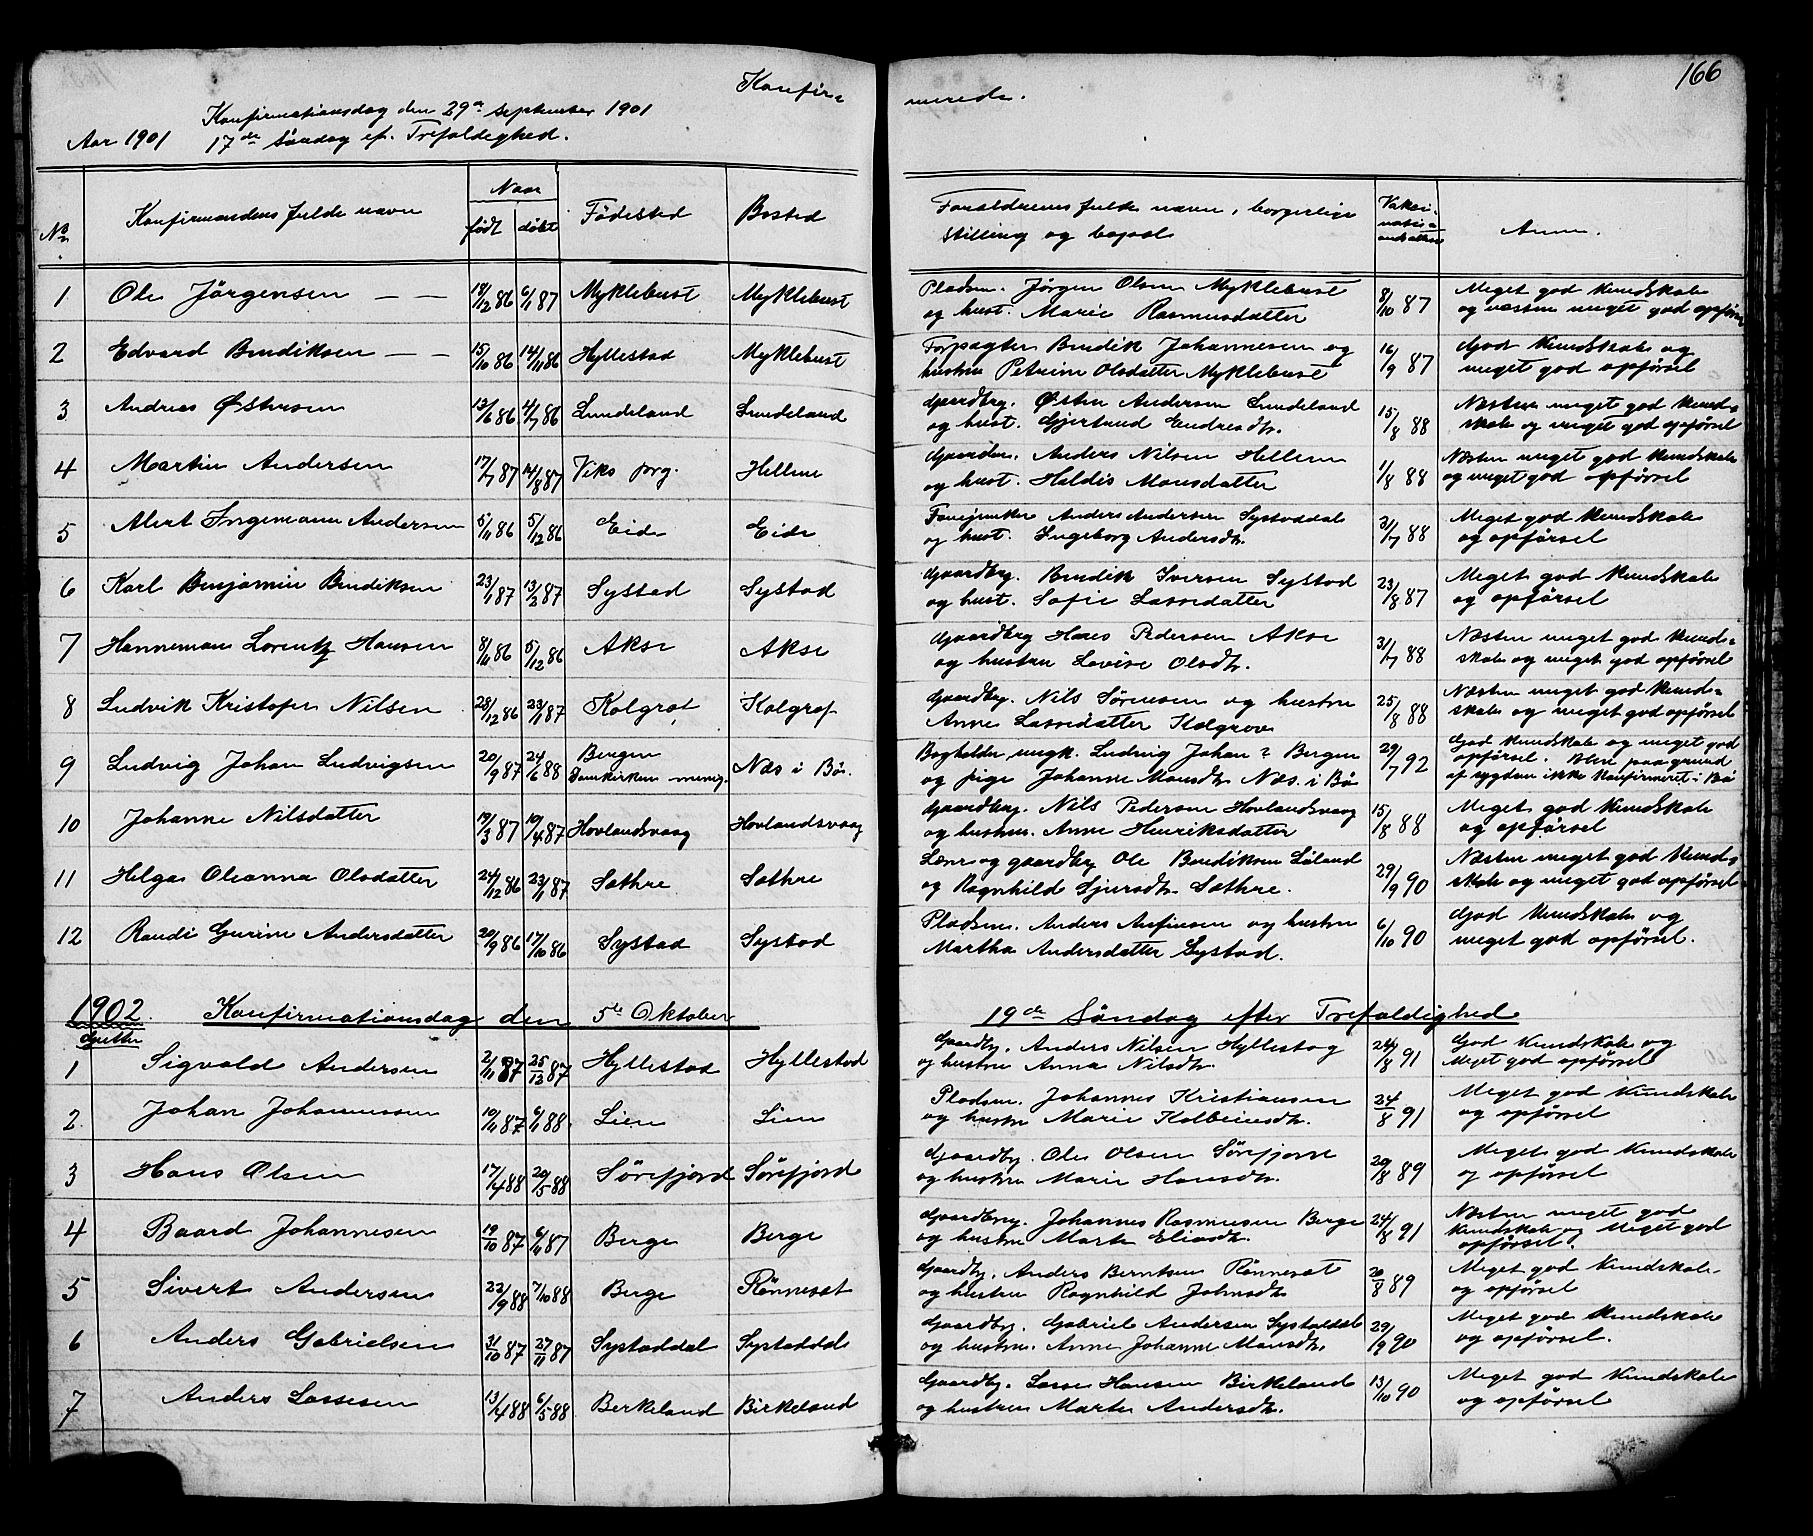 166
Konfir=
merede.
Konfirmationsdag den 29de September 1901
Aar 1901 17de Søndag ef. Trefoldighed.
No Konfirmandens fulde navn Naar Fødested Bosted Forældrenes fulde navne, borgerlige Vakci- Anm.
født døbt stilling og bopæl nations-
1 Ole Jørgensen — — 18/12 86 6/1 87 Myklebust Myklebust Pladsm. Jørgen Olsen Myklebust 8/10 87 Meget god kundskab
og hust. Marie Rasmusdatter og næsten meget god opførsel
2 Edvard Bendiksen — — 15/10 86 14/11 86 Hyllestad Myklebust Forpagter Bendik Johannesen og 16/9 87 God kundskab og
hustru Petrine Olsdatter Myklebust meget god opførsel
3 Andreas Østensen 13/6 86 4/7 86 Lundeland Lundeland Gaardbrg. Østen Andersen Lundeland 15/8 88 Næsten meget god kund=
og hust. Gjertrud Endresdtr. skab og meget god opførsel
4 Martin Andersen 17/7 87 14/8 87 Viks prg. Hellene Gaardm. Anders Nilsen Hellene 1/8 88 Næsten meget god kundskab
og hust. Heldis Monsdatter og meget god opførsel
5 Alert Ingemann Andersen 5/11 86 5/12 86 Eide Eide Fanejunker Anders Andersen Systaddal 31/7 88 Meget god kundskab
og hust. Ingeborg Andersdt. og opførsel
6 Karl Benjamin Bendiksen 23/1 87 13/2 87 Systad Systad Gaardbrg. Bendik Iversen Systad 23/8 87 Meget god kundskab
og hust. Sofie Lassedatter og opførsel
7 Hanneman Lorentz Hansen 8/11 86 5/12 86 Akse Akse Gaardbrg Hans Pedersen Akse 31/7 88 Næsten meget god kund=
og hustru Lovise Olsdt. skab og meget god opførsel
8 Ludvik Kristofer Nilsen 28/12 86 23/1 87 Kolgrof Kolgrof Gaardbrg. Nils Sørensen og hustru 25/8 88 Næsten meget god kund=
Anne Lassedatter Kolgrove skab og meget god opførsel
9 Ludvig Johan Ludvigsen 20/9 87 24/6 88 Bergen Næs i Bø. Bogholder ungk. Ludvig Johan ? Bergen 29/7 92 God kundskab og meget god
Domkirken menig. og pige Johanne Monsdt. Næs. i Bø opførsel. Blev paa grund
af sygdom ikke konfirmeret i Bø
10 Johanne Nilsdatter 19/3 87 10/4 87 Hovlandsvaag Hovlandsvaag Gaardbrg. Nils Pedersen Hovlandsvaag 15/8 88 Meget god kundskab
og hustru. Anne Henriksdatter og opførsel
11 Helga Oleanna Olsdatter 24/12 86 23/1 87 Sæthre Sæthre Lærer og gaardbrg Ole Bendiksen Løland 29/9 90 Næsten meget god kund=
og Ragnhild Sjursdt. Sæthre. skab og meget god opførsel
12 Randi Gurine Andersdatter 20/9 86 17/10 86 Systad Systad Pladsm. Anders Anfinsen og hustru 6/10 90 God kundskab og
Martha Andersdatter Systad. meget god opførsel.
1902. Konfirmationsdag den 5te Oktober 19de Søndag efter Trefoldighed
Gutter
1 Sigvald Andersen 2/11 87 25/12 87 Hyllestad Hyllestad Gaardbr. Anders Nilsen Hyllestad 24/8 91 God Kundskab og
og hustru Anna Nilsdt. Meget god opførsel
2 Johan Johannessen 10/11 87 6/1 88 Lien Lien Pladsm. Johannes Kristiansen 24/8 91 Meget god kundskab
og hustru Marie Kolbeinsdt. og opførsel
3 Hans Olsen 17/4 88 20/5 88 Sørefjord Sørefjord Gaardbr. Ole Olsen Sørefjord 20/8 89 Meget god kundskab
og hustru Marie Hansdt. og opførsel
4 Baard Johannesen 19/10 87 6/11 87 Berge Berge Gaardbrg. Johannes Rasmusen Berge 24/8 91 Næsten meget god
og hustru Marte Eliasdt. kundskab og Meget god
opførsel.
5 Sivert Andersen 22/9 88 7/10 88 Berge Rønneset Gaardbr. Anders Berntsen Rønneset 20/8 89 Meget god kundskab
og hustru Ragnhild Johnsdt. og opførsel
6 Anders Gabrielsen 31/10 87 27/11 87 Systaddal Systaddal Gaardbr. Gabriel Andersen Systaddal 29/9 90 Meget god kundskab
og hustru. Anne Johanne Monsdt. og opførsel.
7 Anders Lassesen 13/4 88 6/5 88 Berkeland Birkeland Gaardbr. Lasse Hansen Birkeland 13/10 90 Meget god kundskab
og hustru Marte Andersdt. og opførsel